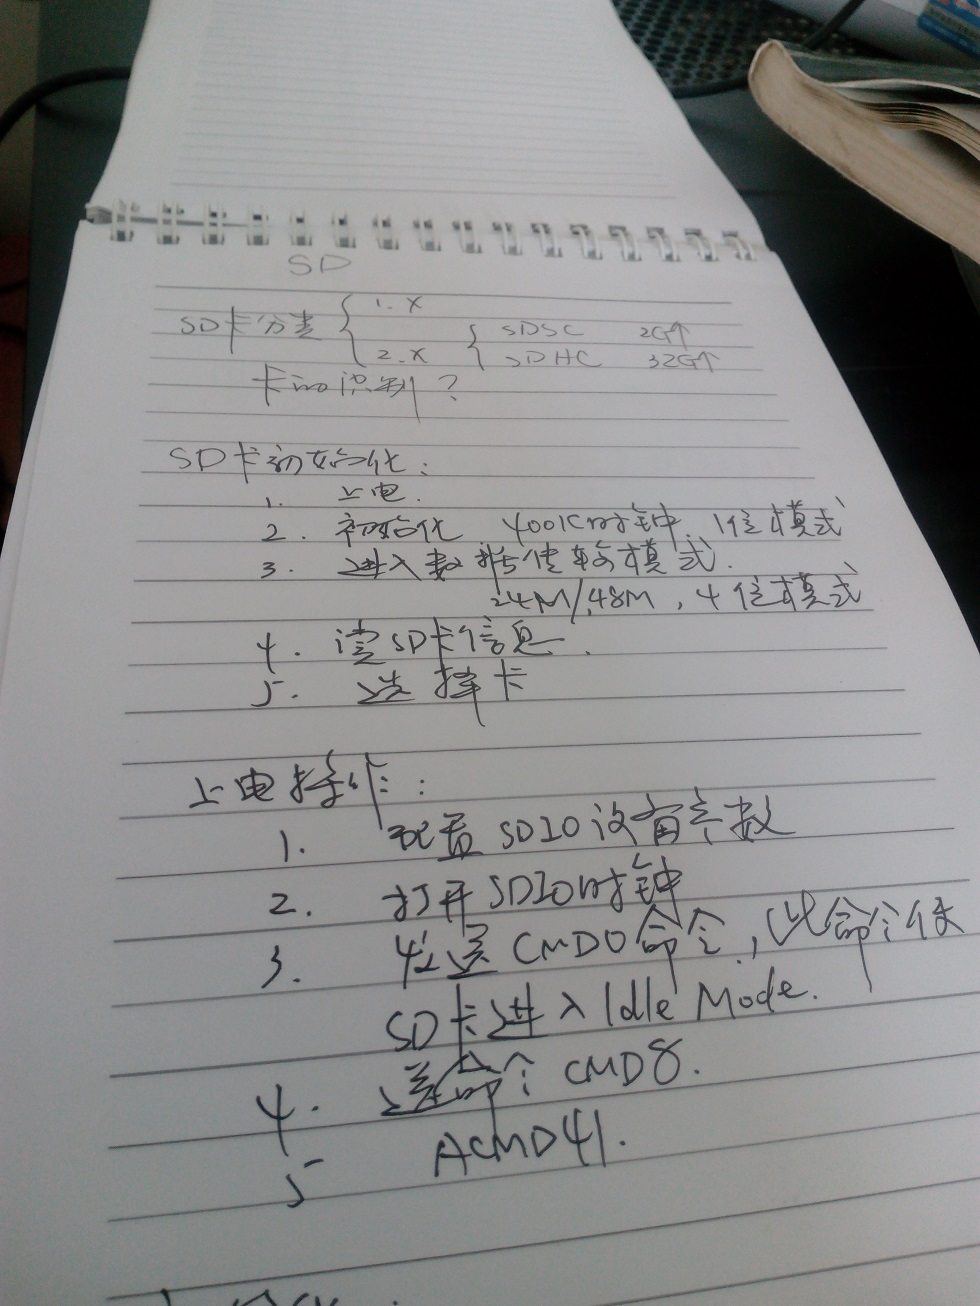 SD
SD卡分类 { 1.X
2.X { SDSC 2G↑
SDHC 32G↑
卡的识别?
SD卡初始化:
1. 上电.
2. 初始化 400K时钟, 1位模式
3. 进入数据传输模式.
24M/48M, 4位模式
4. 读SD卡信息.
5. 选择卡
上电操作:
1. 配置SDIO设备参数
2. 打开SDIO时钟
3. 发送CMD0命令, 此命令使
SD卡进入Idle Mode.
4. 送命令CMD8.
5 ACMD41.